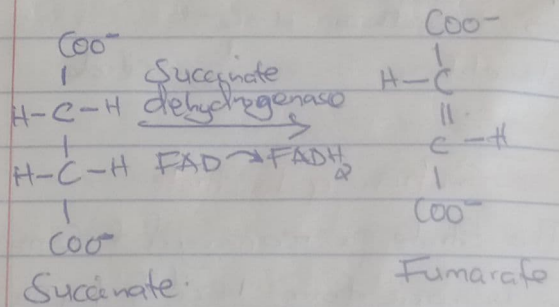 COO⁻
|
H-C-H
|
H-C-H
|
COO⁻
Succinate.
Succinate
dehydrogenase
FAD → FADH₂
COO⁻
|
H-C
||
C-H
|
COO⁻
Fumarate